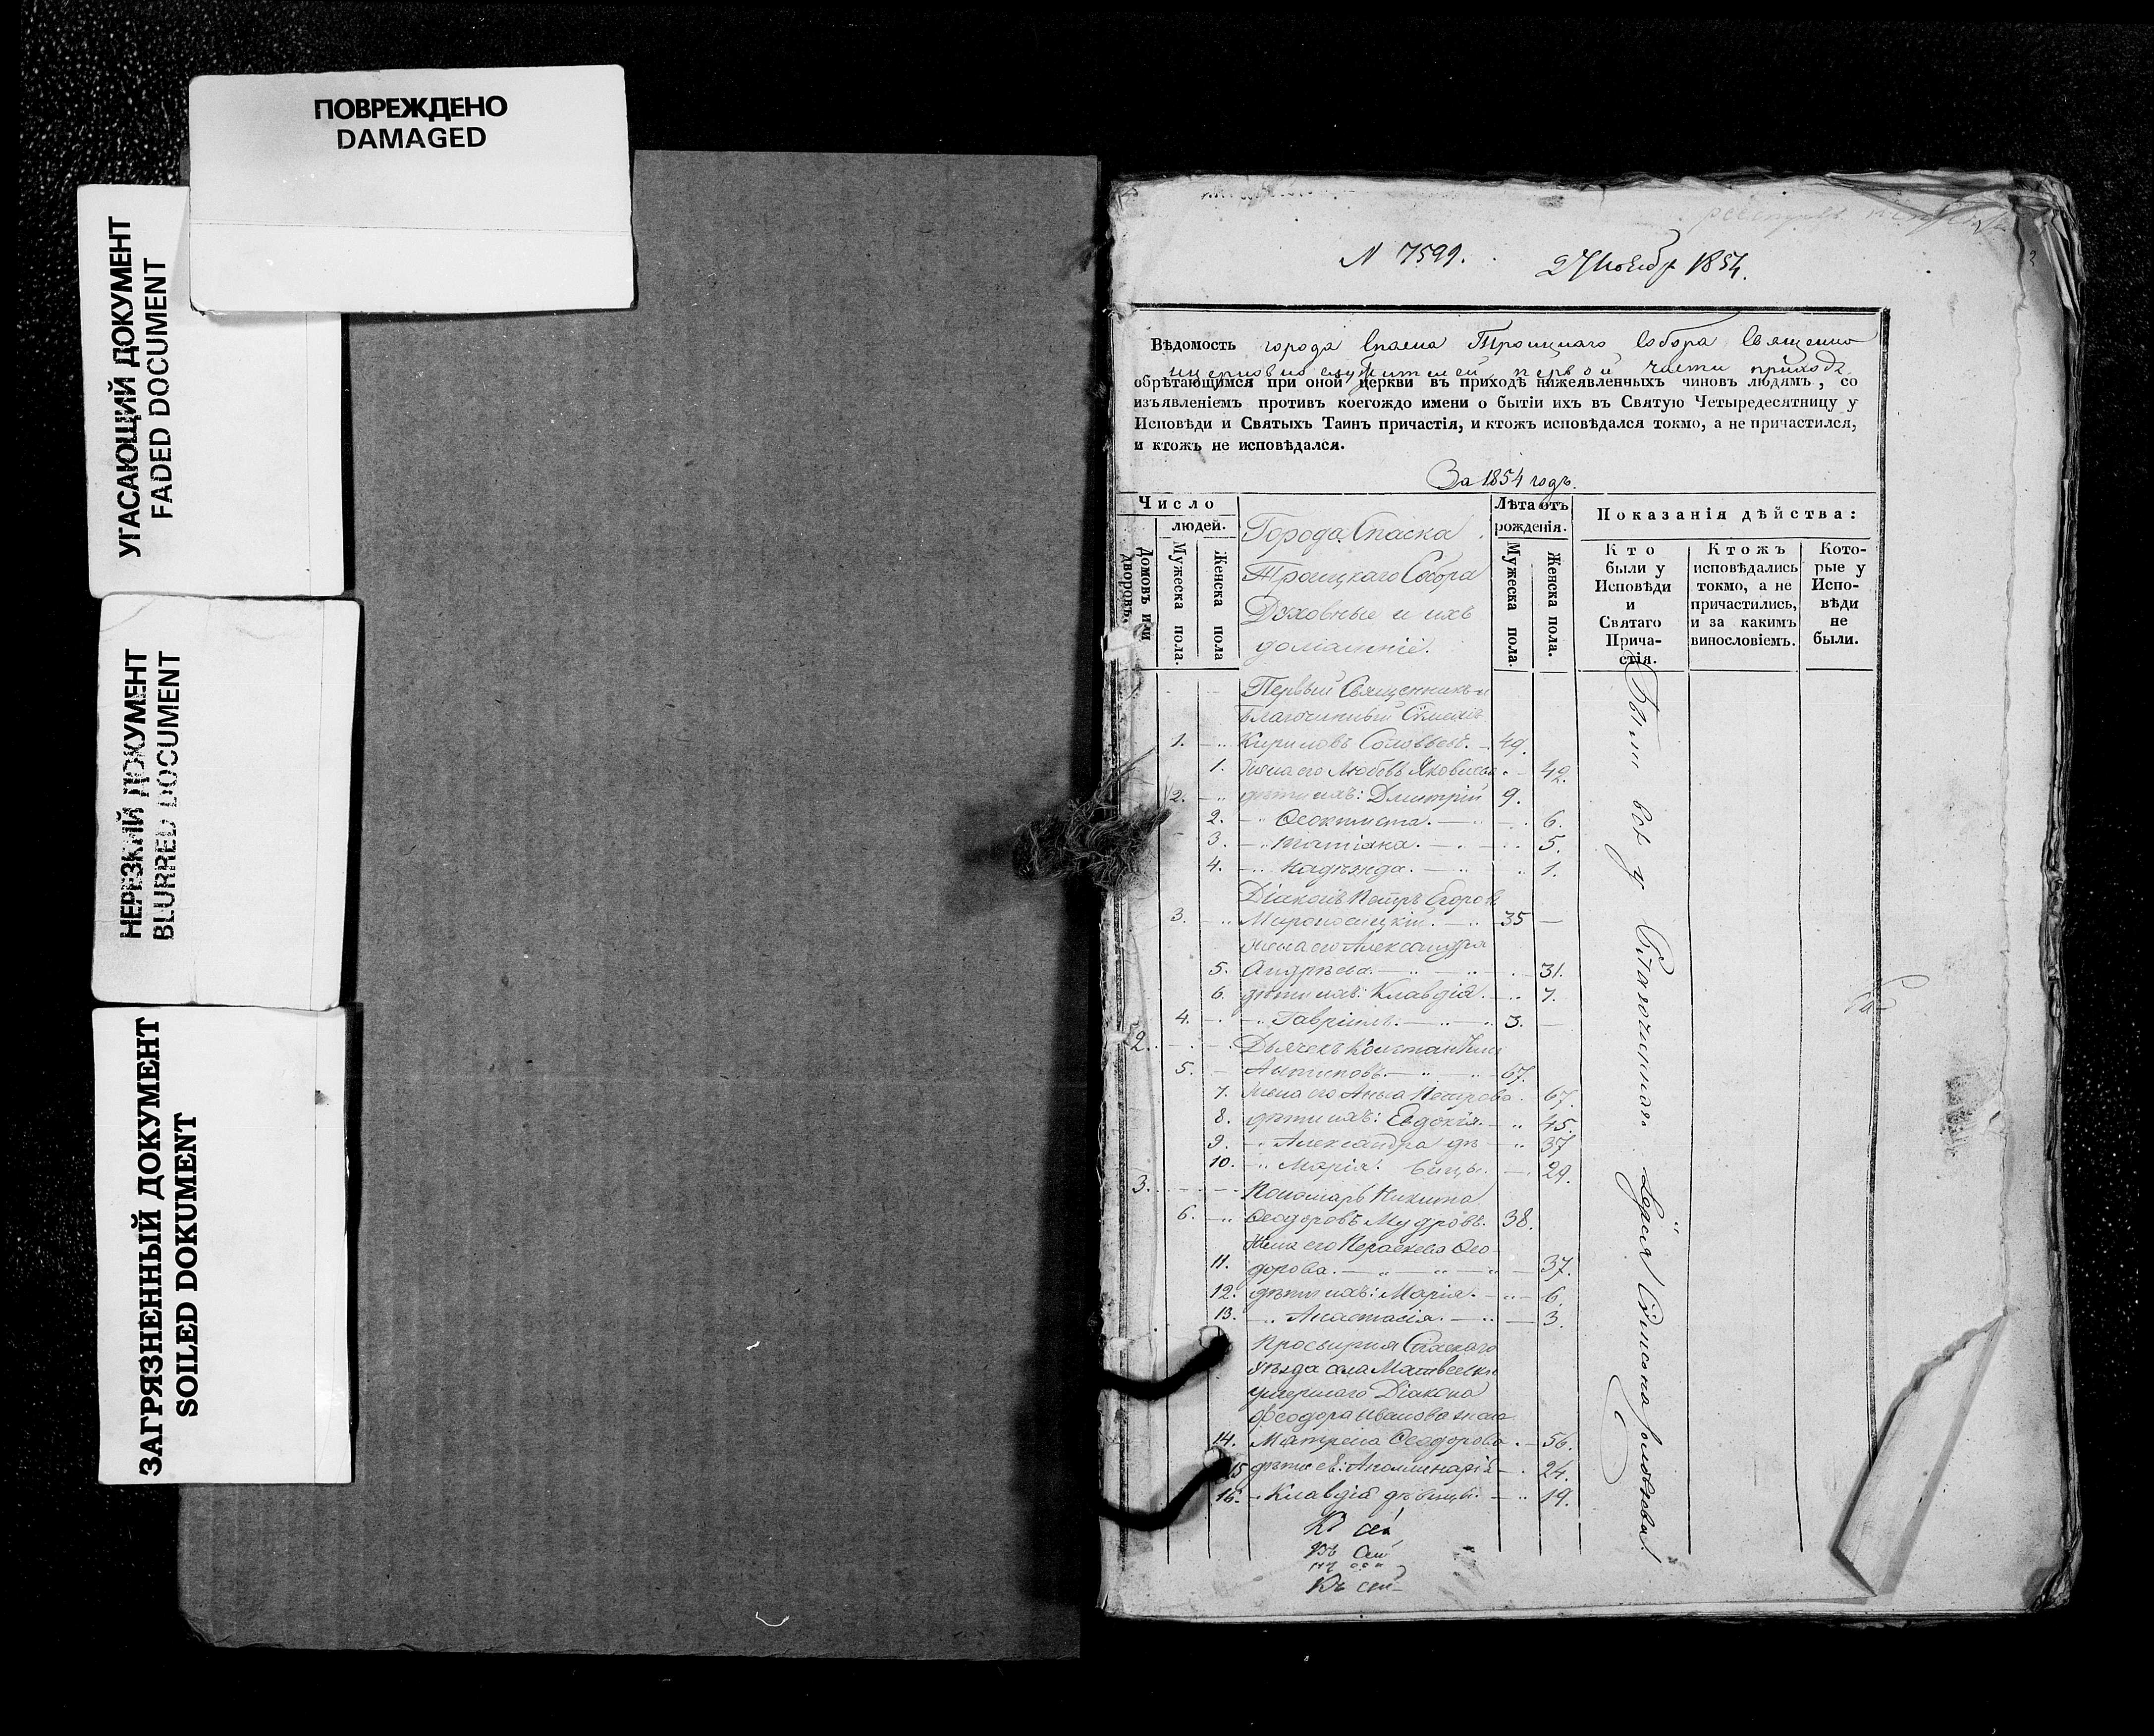 ПОВРЕЖДЕНО
DAMAGED
УГАСАЮЩИЙ ДОКУМЕНТ
FADED DOCUMENT
НЕРЕЗКИЙ ДОКУМЕНТ
BLURRED DOCUMENT
ЗАГРЯЗНЕННЫЙ ДОКУМЕНТ
SOILED DOKUMENT
N 7599. 27 Ноябр 1854.
Вѣдомость города Спаска Троицкаго Собора Священно
церковно служителей первой части прихода
обрѣтающимся при оной церкви въ приходѣ нижеявленныхъ чиновъ людямъ, со
изъявленіемъ противъ коегождо имени о бытіи ихъ въ Святую Четыредесятницу у
Исповѣди и Святыхъ Таинъ причастія, и ктожъ исповѣдался токмо, а не причастился,
и ктожъ не исповѣдался.
За 1854 годъ.
Число
людей.
Домовъ или дворовъ.
Мужеска пола.
Женска пола
Города Спаска
Троицкаго Собора
Духовные и ихъ
домашніе.
Лѣта отъ
рожденія.
Мужеска пола.
Женска пола.
Показанія дѣйства:
Кто
были у
Исповѣди
и
Святаго
Прича-
стія.
Ктожъ
исповѣдались
токмо, а не
причастились,
и за какимъ
винословіемъ.
Кото-
рые у
Испо-
вѣди
не
были.
1. Первый Священникъ и
Благочинный Сѵмеонъ
1. Кириловъ Соловьевъ. 49.
1. Жена его Любовь Яковлева 42.
2. дѣти ихъ: Дмитрій 9.
2. Ѳеоктиста. 6.
3. Татіана. 5.
4. Надежда. 1.
Діаконъ Петръ Егоровъ
3. Мироносицкій. 35
жена его Александра
5. Андрѣева. 31.
6. дѣти ихъ: Клавдія. 7.
4. Гавріилъ. 3.
2. Дьячекъ Константинъ
5. Антиповъ. 67.
7. жена его Анна Петрова. 67.
8. дѣти ихъ: Евдокія. 45.
9. Александра дѣ 37
10. Марія. вицы. 29.
3. Пономарь Никита
6. Ѳеодоровъ Мудровъ. 38.
жена его Параскева Ѳео-
11. дорова. 37.
12. дѣти ихъ: Марія. 6.
13. Анастасія. 3.
Просвирня Спаскаго
уѣзда села Матвеевки
умершаго Діакона
Феодора Иванова жена
14. Матрена Ѳеодорова. 56.
15 дѣти ев: Аполлинарія 24.
16. Клавдія дѣвицы. 19.
Были всѣ у Благочиннаго Іерея Сѵмеона Соловьева.
Къ сей
Къ сей